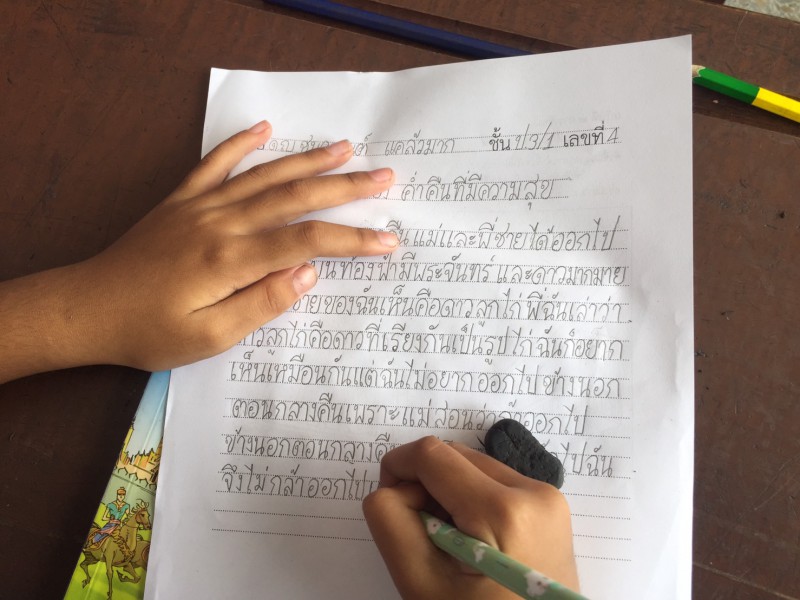 แคล้วมาก ชั้น ป3/1 เลขที่ 4
ค่ำคืนที่มีความสุข
แม่และพี่ชายได้ออกไป
บนท้องฟ้ามีพระจันทร์ และดาวมากมาย
ของฉันเห็นคือดาวลูกไก่ พี่ฉันเล่าว่า
ดาวลูกไก่คือดาวที่เรียงกันเป็นรูปไก่ ฉันก็อยาก
เห็นเหมือนกันแต่ฉันไม่อยากออกไปข้างนอก
ตอนกลางคืนเพราะแม่สอนว่าถ้าออกไป
ข้างนอกตอนกลางคืน ไปฉัน
จึงไม่กล้าออกไป